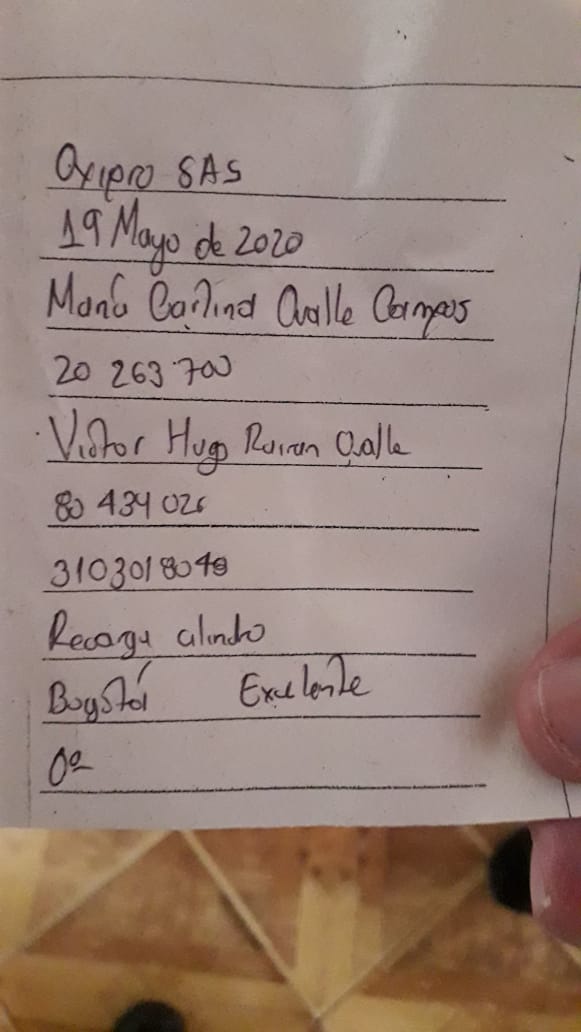 Oxipro SAS
19 Mayo de 2020
María Carlina Ovalle Campos
20 263 700
Victor Hugo Ovalle
80 434 026
3103018048
Recarga cilindro
Bogotá Excelente